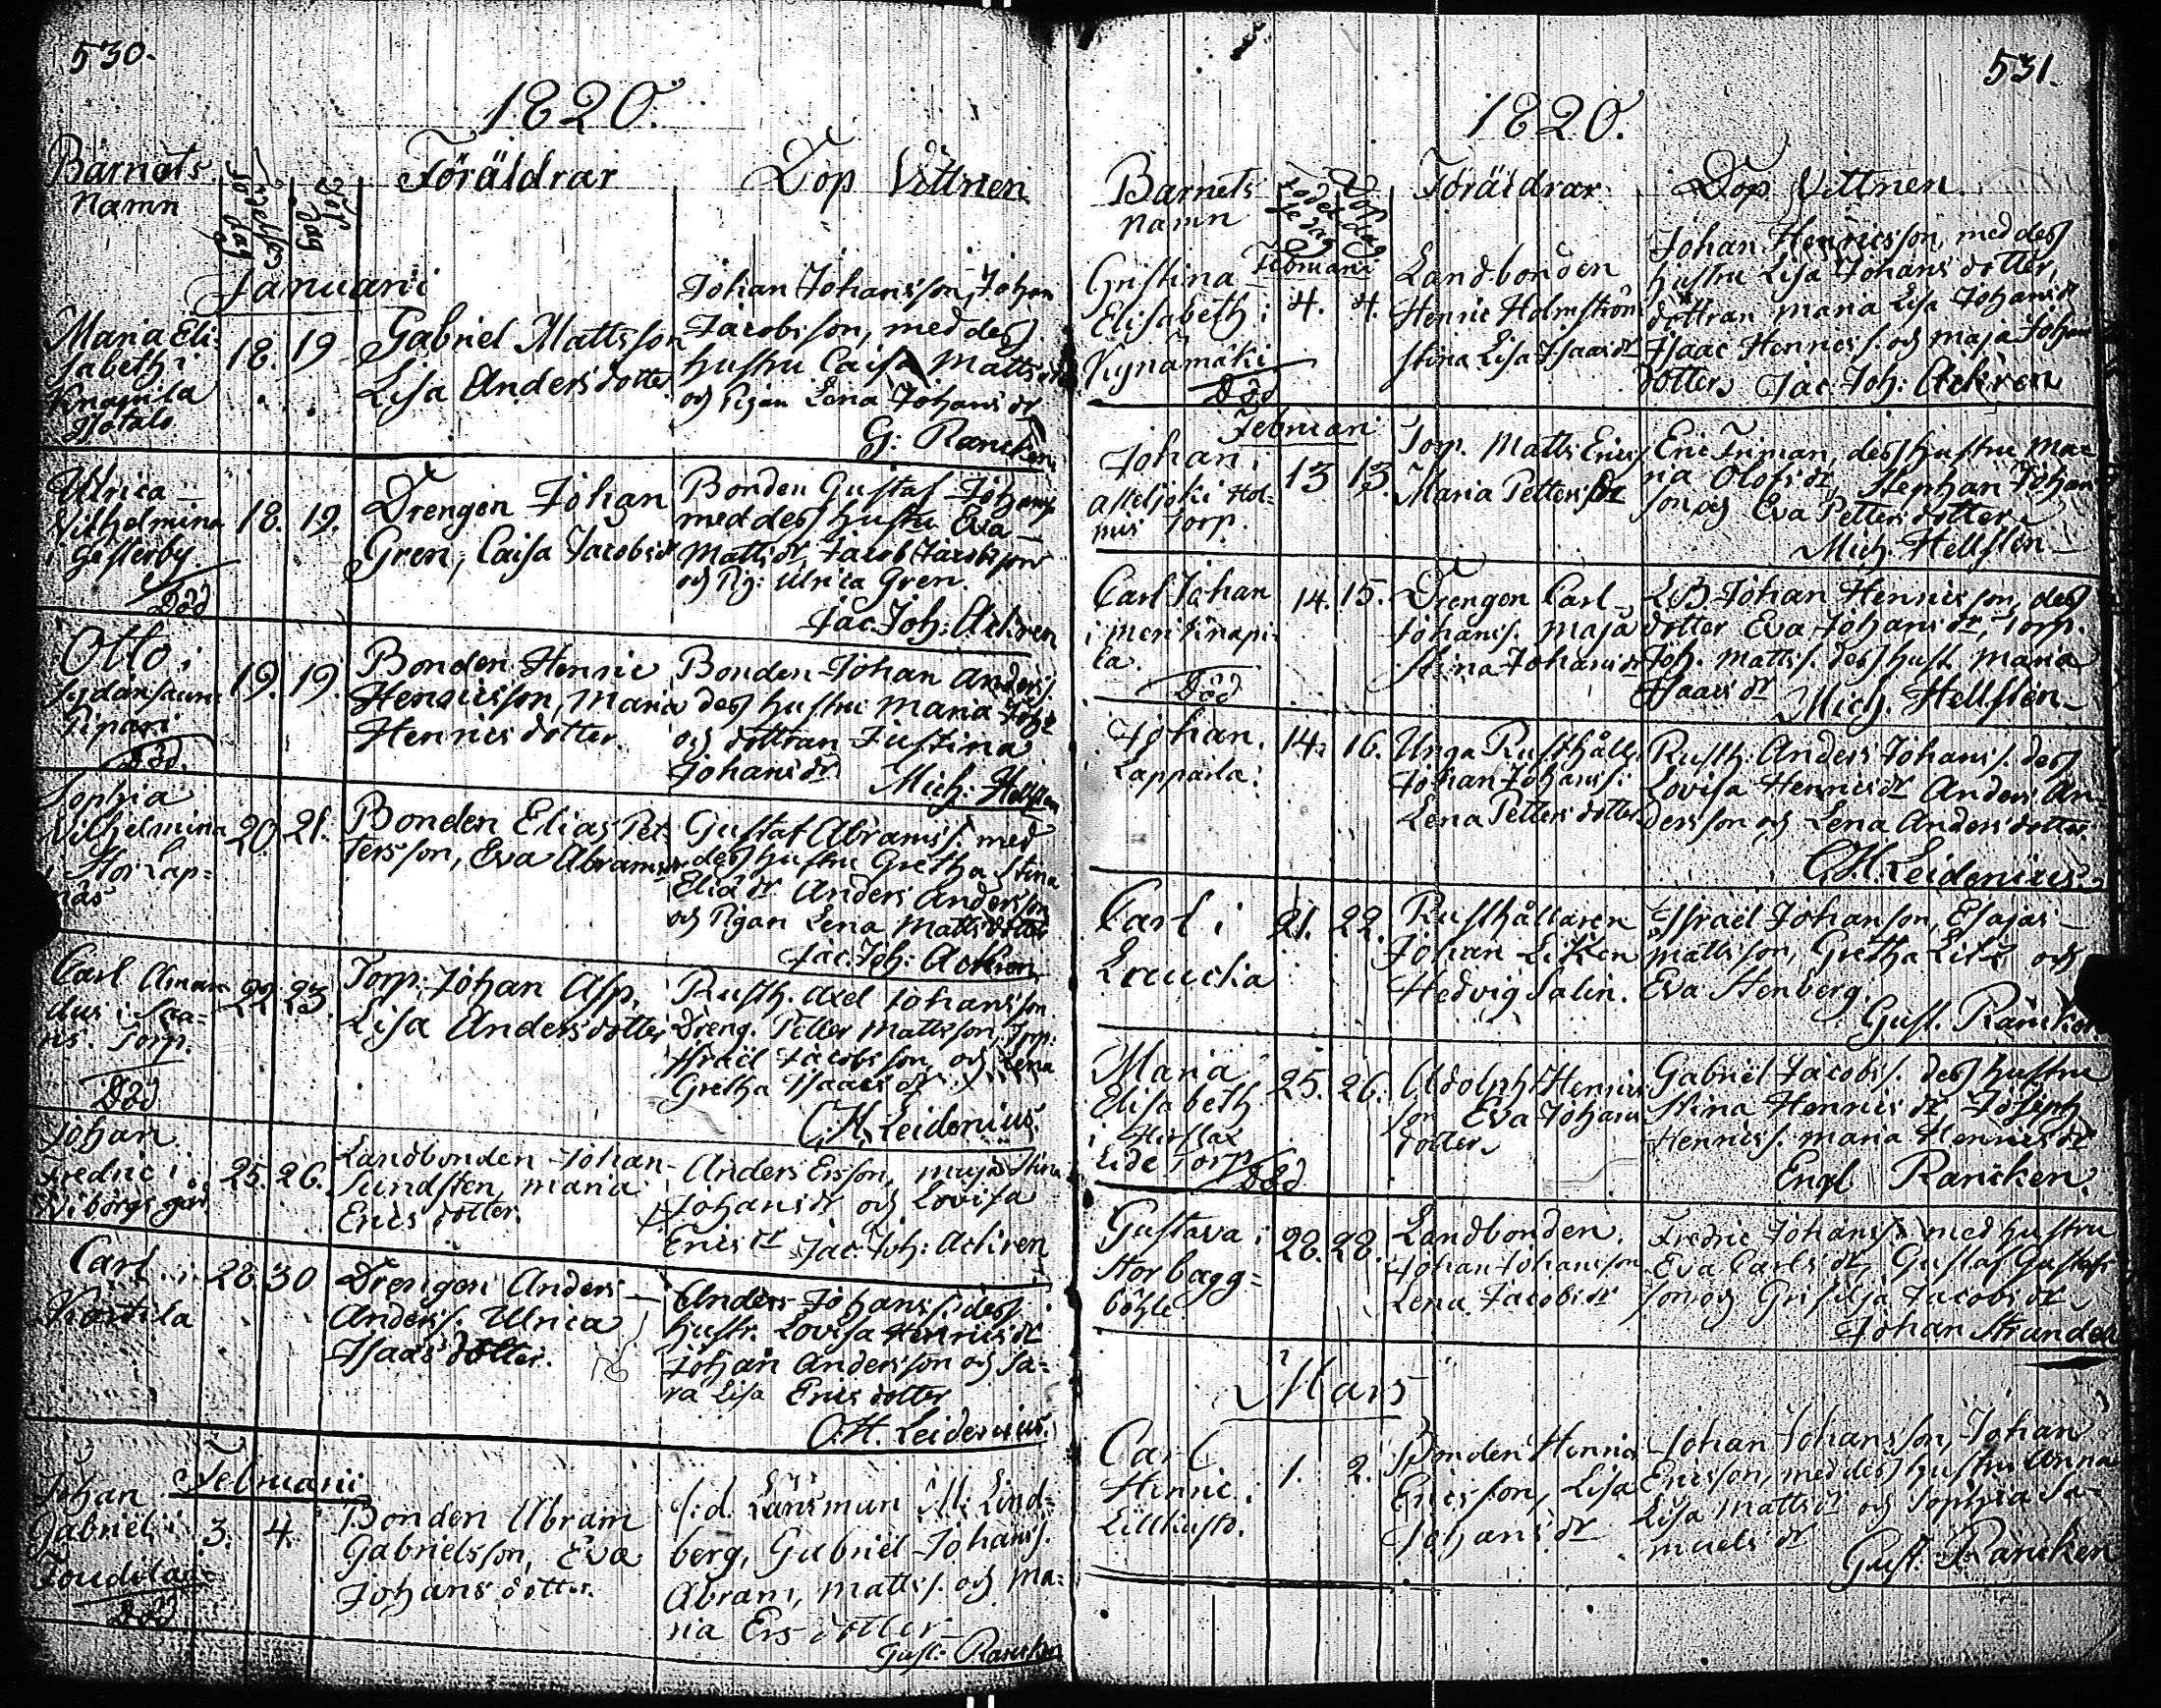 530.
1820.
Barnets
Namn
Födelse
dag
Döp
dag
Föräldrar
Döp Vittnen
Januarii
Maria Eli-
sabeth i
Knapila
18. 19
Gabriel Mattsson
Lisa Andersdotter
Johan Johansson, Johan
Jacobsson, med dess
hustru Caisa Mattsdr
och Pigan Lena Johansdr
G: Rancken
Ulrica
Vilhelmina
i Gesterby
Död
18. 19.
Drengen Johan
Gren, Caisa Jacobsdr
Bonden Gustaf Johanss
med dess hustru Eva
Mattsdr, Jacob Jacobsson
och Pig: Ulrica Gren.
Jac. Joh: Achren
Otto i
Pipari
Död.
19. 19.
Bonden Henric
Henricsson, Maria
Henricsdotter
Bonden Johan Anders.
dess hustru Maria
och dottran Justina
Johansdr
Mich: Hellsten
Sophia
Vilhelmina
i Stor Lap-
näs
20. 21.
Bonden Elias Pet-
tersson, Eva Abramsdr
Gustaf Abramss. med
dess hustru Gretha Stina
Eliædr Anders Andersson
och Pigan Lena Mattsdotter
Jac. Joh: Achren
Carl Aman-
dus i Saa-
ris. Torp.
Död
22. 23.
Torp. Johan Asp,
Lisa Andersdotter
Rusth. Axel Johansson
Dreng. Petter Mattsson, Torp:
Israël Jacobsson och Lena
Gretha Isaacsdr
C. H. Leidenius.
Johan
Fredric i
Wiborgs gård
25. 26.
Landbonden Johan
Sundsten, Maria
Ericsdotter.
Anders Ersson, Maja Stina
Johansdr och Lovisa
Ericsdr Jac: Joh: Achren
Carl i
28. 30
Drengen Anders
Anderss. Ulrica
Isaacsdotter.
Anders Johanss. dess
hustr. Lovisa Henricsdr
Johan Andersson och Sa-
ra Lisa Ericsdotter
C. H. Leidenius.
Februarii
Johan
Gabriel i
Död
3. 4.
Bonden Abram
Gabrielsson, Eva
Johansdotter.
f: d. Länsman M. Lind-
berg, Gabriel Johanss.
Abram, Mattss. och Ma-
ria Ersdotter
Gust: Rancken
531.
1820.
Barnets
Namn
Födel
se dag
Döp
dag
Föräldrar
Döp Vittnen.
Februarii
Cristina
Elisabeth i
Kynämäki
Död
4. 4.
Landbonden
Henric Holmström
Stina Lisa Isaacsdr
Johan Henricsson, med dess
hustru Lisa Johansdotter,
dottran Maria Lisa Johansdr
Isaac Henricss. och Maja Johans
dotter Jac. Joh: Achren
Februari
Johan i
Torp.
13 13.
Torp. Matts Erics
Maria Pettersdr
Eric Friman, dess hustru Ma-
ria Olofsdr, Stephan Johan
son och Eva Pettersdotter
Mich. Hellsten
Carl Johan
i Meri Knapi-
la.
Död
14. 15.
Drengen Carl
Johanss. Maja
Stina Johansdr
L.B. Johan Henricsson, dess
dotter Eva Johansdr, Torp.
Joh. Mattss. dess hust. Maria
Isaacsdr Mich. Hellsten
Johan
i Lappila.
14. 16.
Unga Rusthåll.
Johan Johanss.
Lena Pettersdotter
Rusth. Anders Johanss. dess
Lovisa Henricsdr Anders An-
dersson och Lena Andersdotter
C. H. Leidenius
Carl i
21. 22.
Rusthållaren
Johan
Hedvig Salin.
Israël Johansson, Esajas
Mattsson, Gretha och
Eva Stenberg.
Gust. Rancken
Maria
Elisabeth
i
Torp
Död
25. 26.
Adolph Henrics
son Eva Johans
dotter
Gabriel Jacobss. dess hustru
Stina Henricsdr Joseph
Henricss. Maria Henricsdr
Rancken.
Gustava i
Stor bagg-
böhle
28. 28.
Landbonden.
Johan Johansson
Lena Jacobsdr
Fredric Johanss. med hustru
Eva Carlsdr, Gustaf Gustafs
son och Jacobsdr
Johan Strandell
Mars
Carl
Henric i
1. 2.
Bonden Henric
Ericsson, Lisa
Johansdr
Johan Johansson, Johan
Ericsson, med dess hustru Anna
Lisa Mattsdr och Sophia Sa-
muelsdr
Gust. Rancken